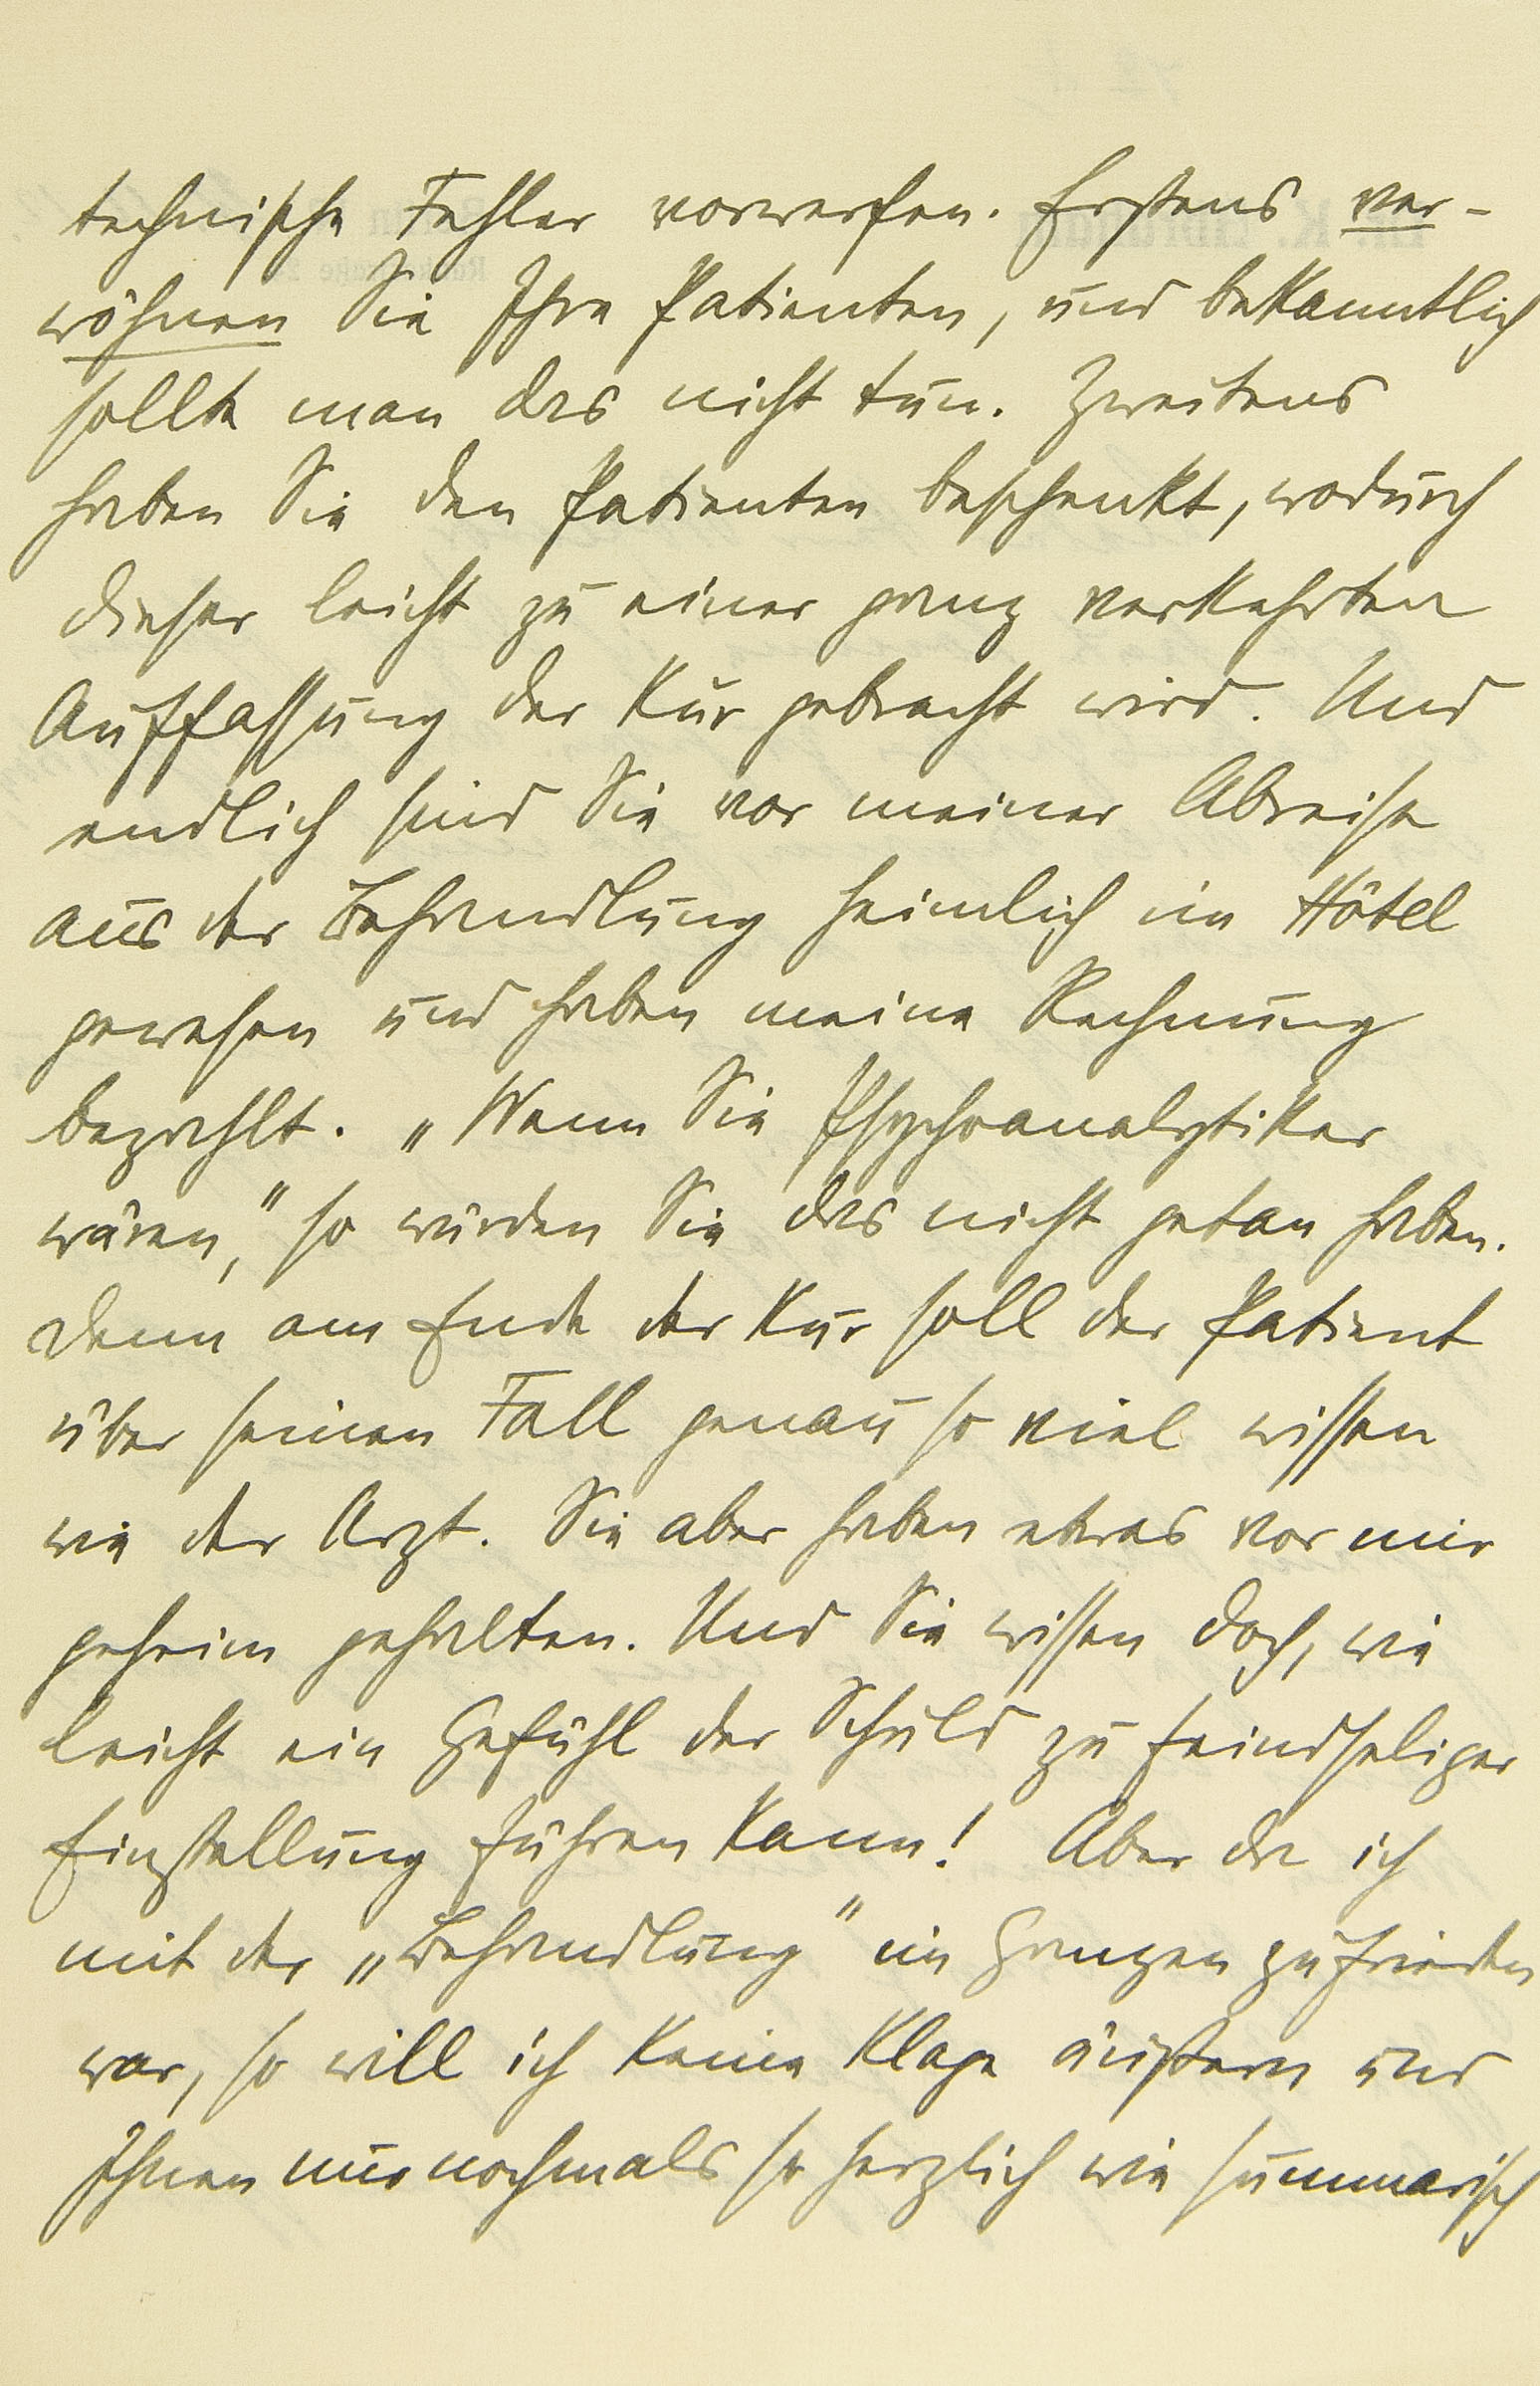 technische Fehler vorwerfen. Erstens ver-
wöhnen Sie Ihre Patienten, und bekanntlich
sollte man das nicht tun. Zweitens
haben Sie den Patienten beschenkt, wodurch
dieser leicht zu einer ganz verkehrten
Auffassung der Kur gebracht wird. Und
endlich sind Sie vor meiner Abreise
aus der Behandlung heimlich im Hôtel
gewesen und haben meine Rechnung
bezahlt. „Wenn Sie Psychoanalytiker
wären,“ so würden Sie das nicht getan haben.
Denn am Ende der Kur soll der Patient
über seinen Fall genau so viel wissen
wie der Arzt. Sie aber haben etwas vor mir
geheim gehalten. Und Sie wissen doch, wie
leicht ein Gefühl der Schuld zu feindseliger
Einstellung führen kann! Aber da ich
mit der „Behandlung“ im Ganzen zufrieden
war, so will ich keine Klage äußern und
Ihnen nur nochmals so herzlich wie summarisch